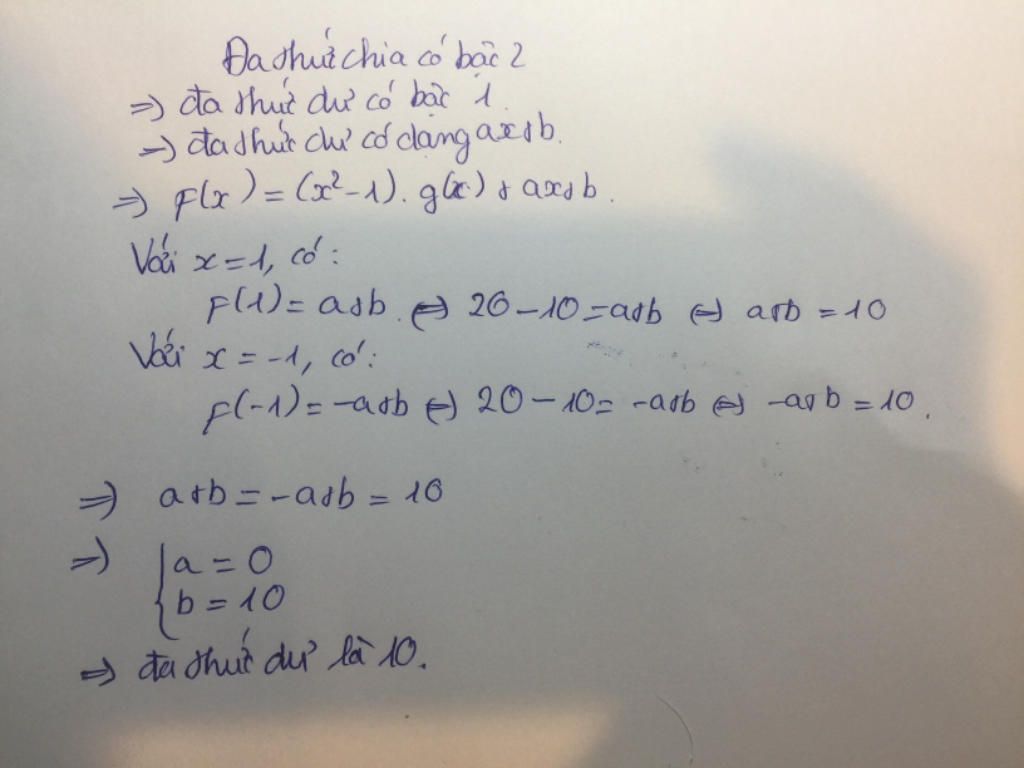 Đa thức chia có bậc 2
=) đa thức dư có bậc 1.
=) đa thức dư có dạng ax+b.
=) F(x) = (x²-1). g(x) + ax+b.
Với x=1, có:
F(1)= a+b. (=) 20-10=a+b (=) a+b = 10
Với x = -1, có:
F(-1)= -a+b (=) 20-10= -a+b (=) -a+b = 10.
=) a+b = -a+b = 10
=) { a = 0
b = 10
=) đa thức dư là 10.